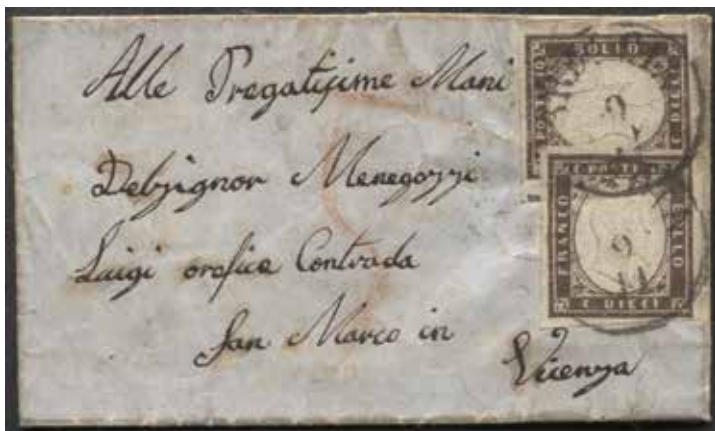 Alle Pregatisime Mani
Delsignor Menegozzi
Luigi orefice Contrada
San Marco in
Vicenza
BOLLO
C. POSTE
FRANCO
BOLLO
C. DIECI
9
11